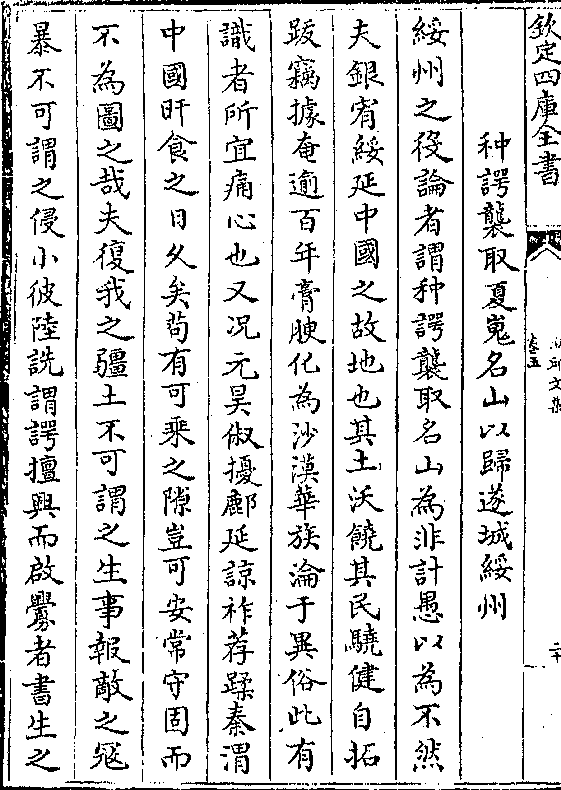 欽定四庫全書
卷五
二十
种諤襲取夏嵬名山以歸遂城綏州
綏州之役論者謂种諤襲取名山為非計愚以為不然
夫銀宥綏延中國之故地也其土沃饒其民驍健自拓
跋竊據奄逾百年膏腴化為沙漠華族淪于異俗此有
識者所宜痛心也又况元昊俶擾鄜延諒祚荐蹂秦渭
中國旰食之日久矣茍有可乘之隙豈可安常守固而
不為圖之哉夫復我之疆土不可謂之生事報敵之寇
暴不可謂之侵小彼陸詵謂諤擅興而啟釁者書生之